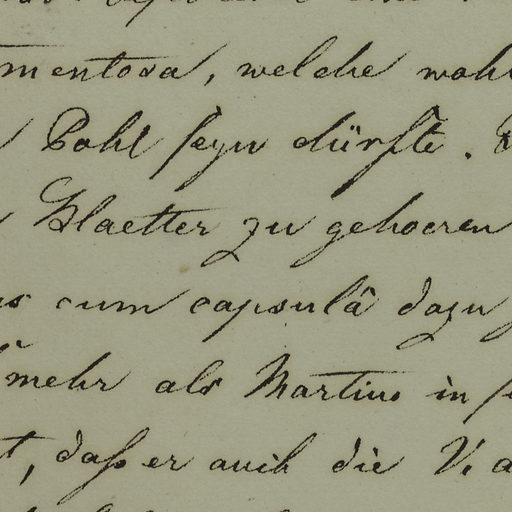 mentosa, welche wohl
Pohl seyn dürfte.
Blaetter zu gehoeren
us cum capsulâ dazu
mehr als Martius in
t, daß er auch die V. a